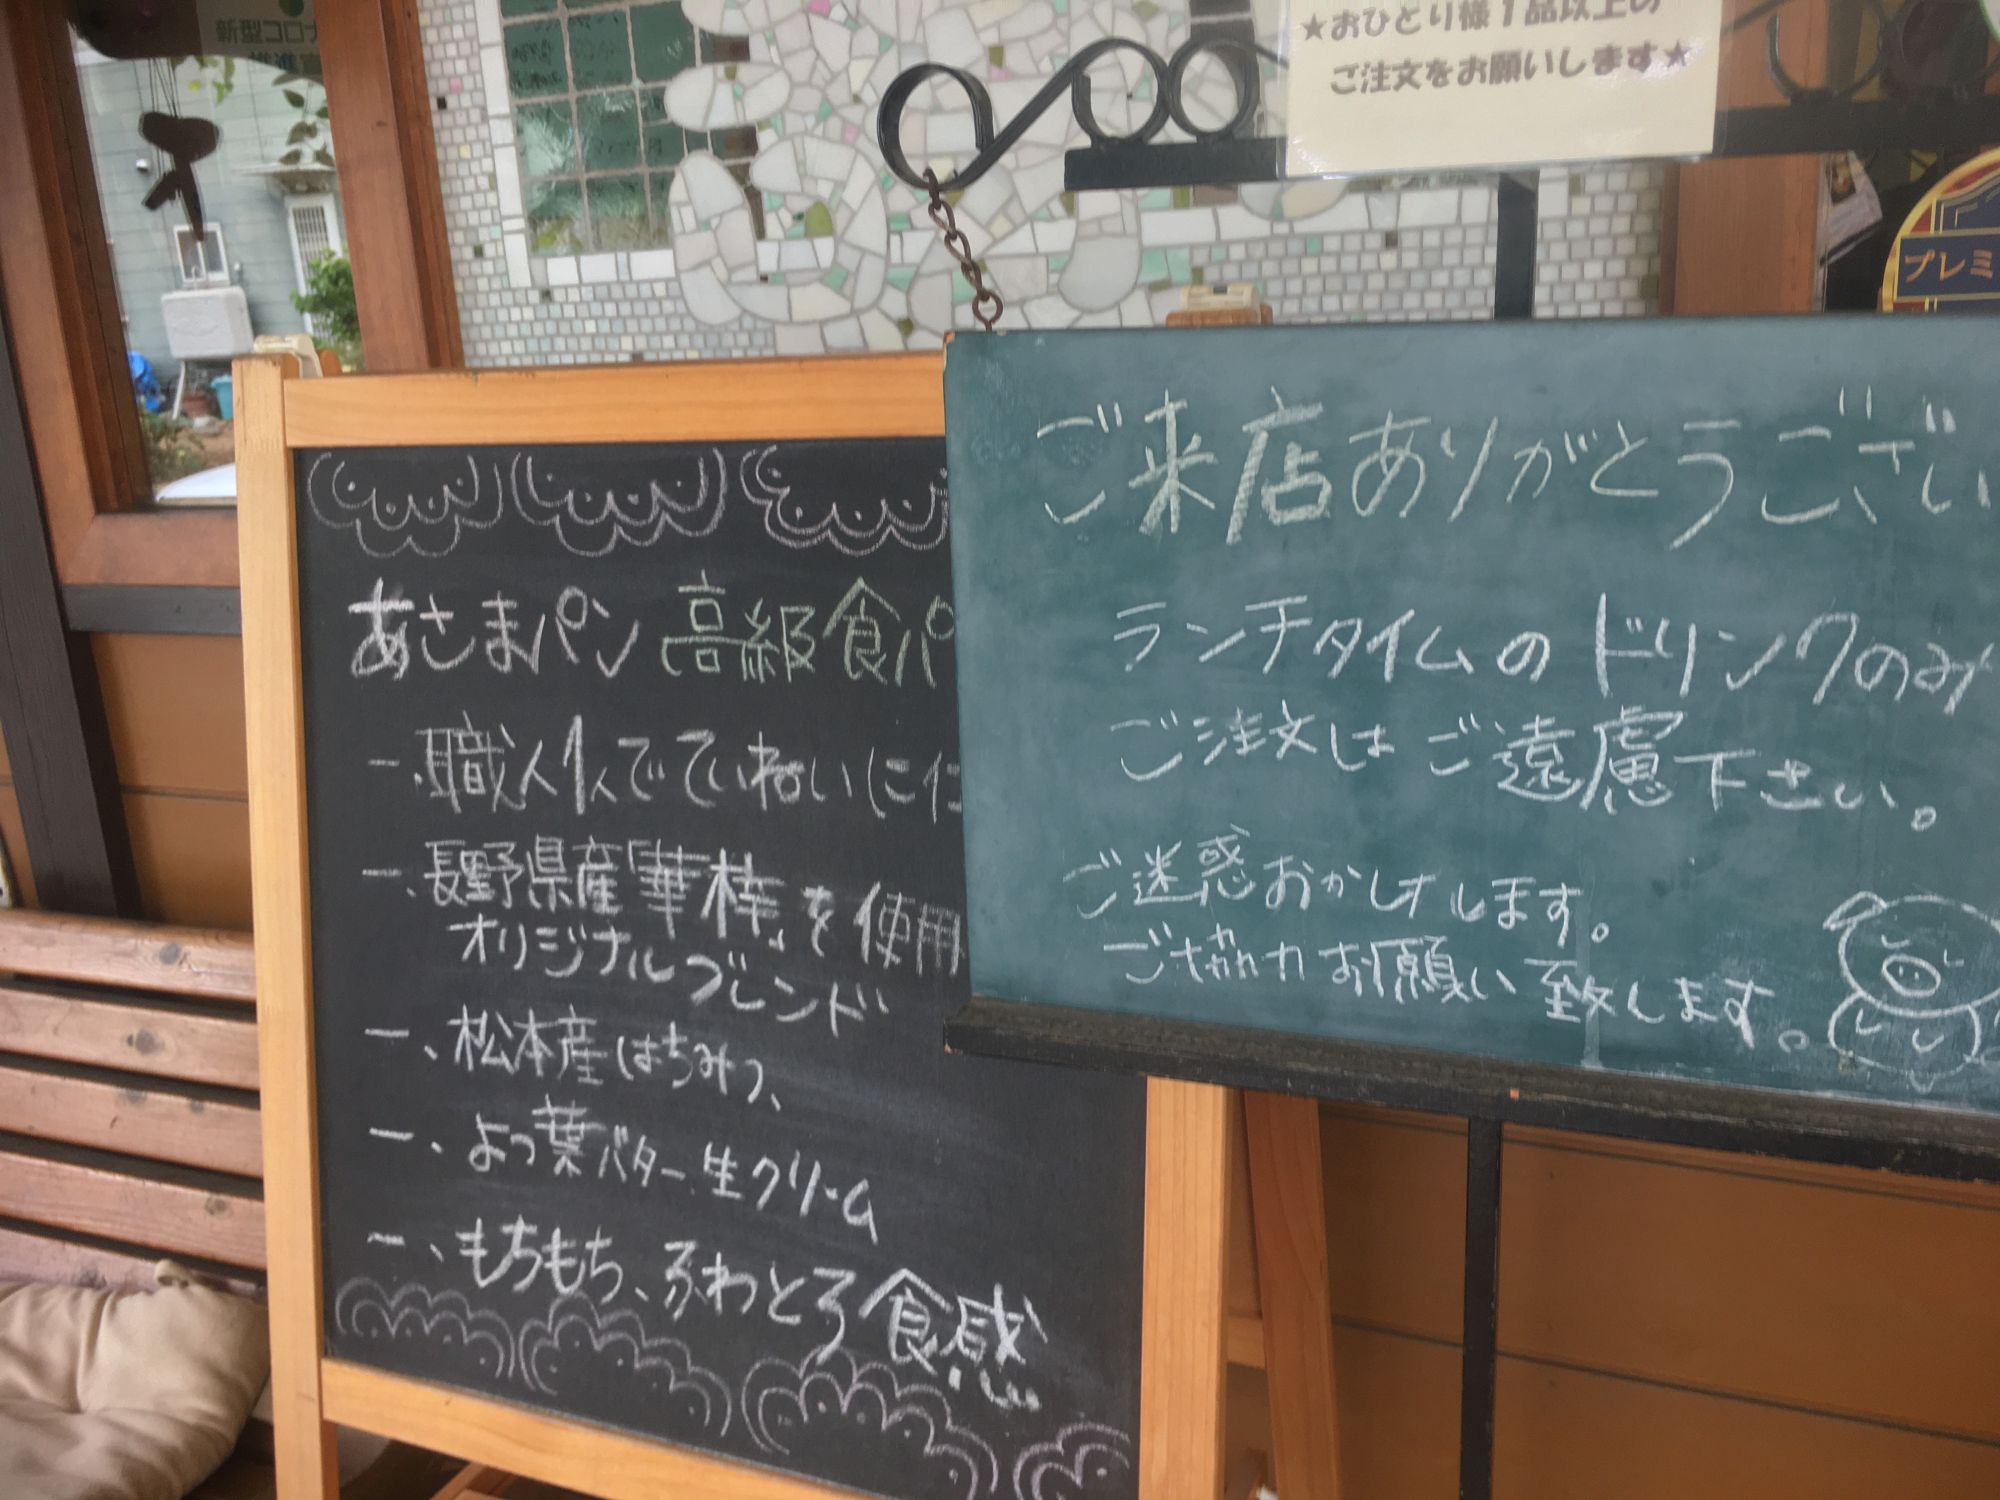 新型コロナ
推進宣
★おひとり様1品以上の
ご注文をお願いします★
プレミ
あさまパン 高級食パ
一、職人1人でていねいに仕
一、長野県産「華梓」を使用
オリジナルブレンド
一、松本産はちみつ、
一、よつ葉バター、生クリーム
一、もちもち、ふわとろ食感
ご来店ありがとうござい
ランチタイムのドリンクのみ
ご注文はご遠慮下さい。
ご迷惑おかけします。
ご協力お願い致します。